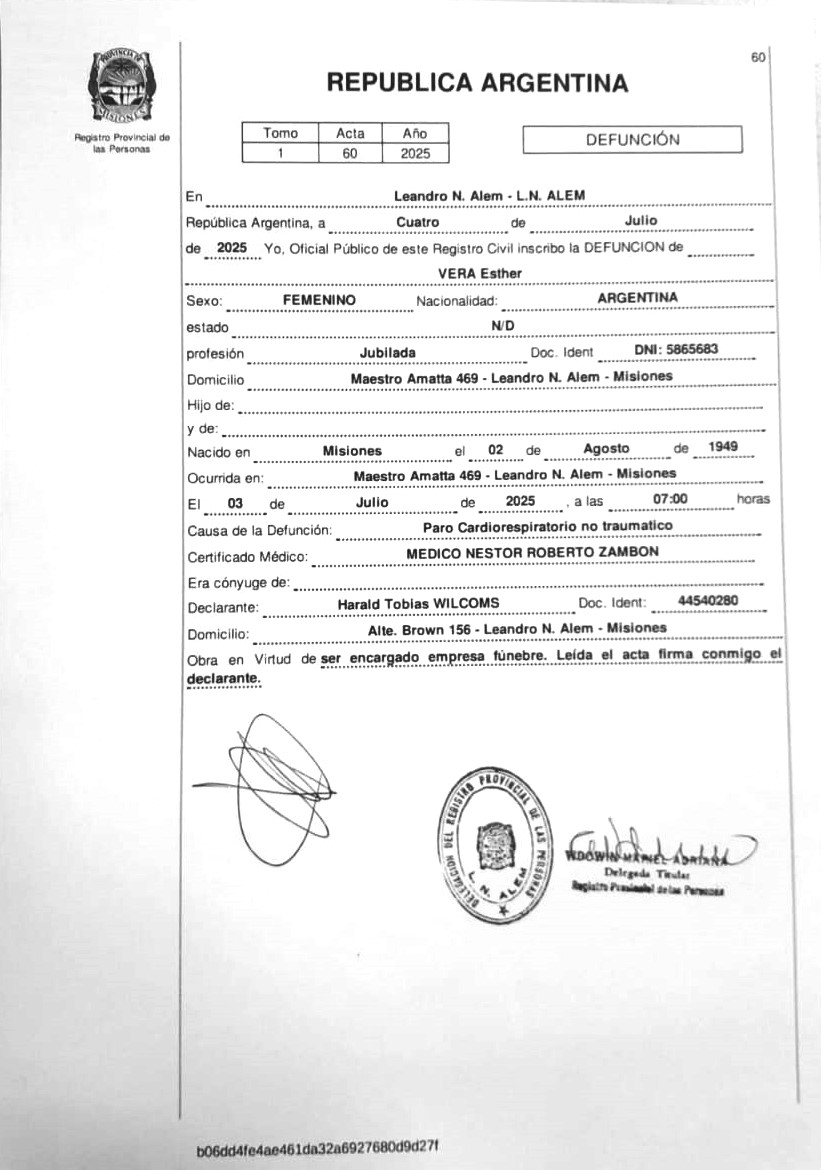 60
REPUBLICA ARGENTINA
Registro Provincial de
las Personas
Tomo Acta Año
1 60 2025
DEFUNCIÓN
En Leandro N. Alem - L.N. ALEM
República Argentina, a Cuatro de Julio
de 2025 Yo, Oficial Público de este Registro Civil inscribo la DEFUNCION de
VERA Esther
Sexo: FEMENINO Nacionalidad: ARGENTINA
estado N/D
profesión Jubilada Doc. Ident DNI: 5865683
Domicilio Maestro Amatta 469 - Leandro N. Alem - Misiones
Hijo de:
y de:
Nacido en Misiones el 02 de Agosto de 1949
Ocurrida en: Maestro Amatta 469 - Leandro N. Alem - Misiones
El 03 de Julio de 2025 , a las 07:00 horas
Causa de la Defunción: Paro Cardiorespiratorio no traumatico
Certificado Médico: MEDICO NESTOR ROBERTO ZAMBON
Era cónyuge de:
Declarante: Harald Tobias WILCOMS Doc. Ident: 44540280
Domicilio: Alte. Brown 156 - Leandro N. Alem - Misiones
Obra en Virtud de ser encargado empresa fúnebre. Leída el acta firma conmigo el
declarante.
DELEGACION DEL REGISTRO PROVINCIAL DE LAS PERSONAS
L. N. ALEM
ADRIANA
Delegada Titular
Registro Provincial de las Personas
b06dd4fe4ae461da32a6927680d9d27f
PROVINCIA DE
MISIONES